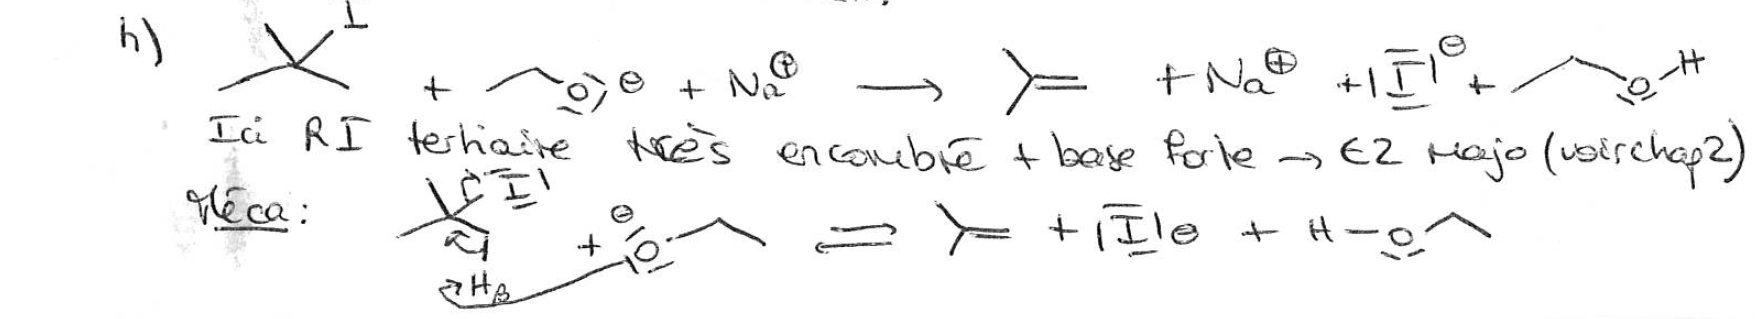 h) I
+ O ⊖ + Na⊕ → + Na⊕ + |I|⊖ + O-H
Ici RI tertiaire très encombré + base forte → E2 majo (voir chap 2)
Méca : I + ⊖ O ⇌ + |I|⊖ + H-O
Hβ